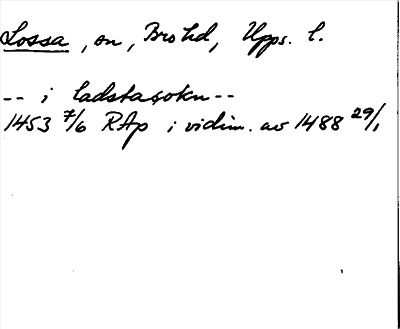 Lossa, sn, Bro hd, Upps. l.
-- i ladstasokn --
1453 7/6 RAp i vidim. av 1488 29/1